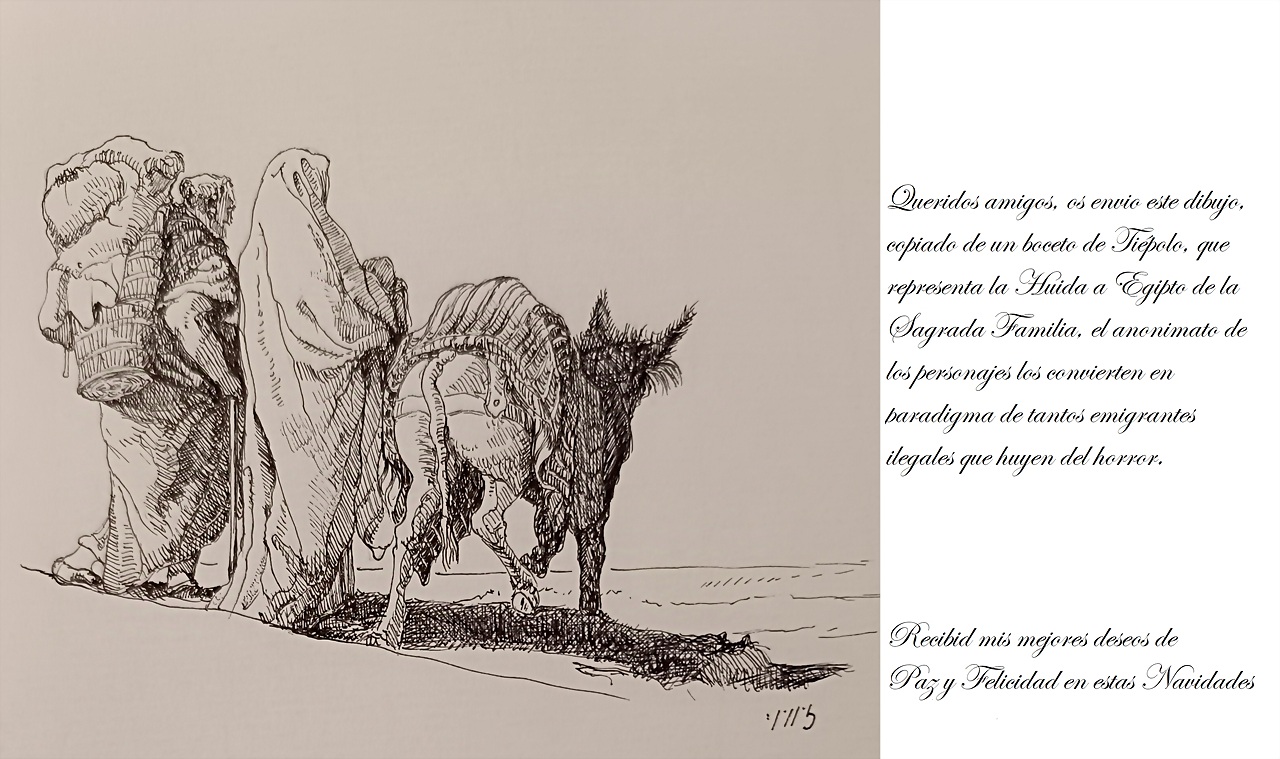 Queridos amigos, os envio este dibujo,
copiado de un boceto de Tiépolo, que
representa la Húida a Egipto de la
Sagrada Familia, el anonimato de
los personajes los convierten en
paradigma de tantos emigrantes
ilegales que huyen del horror.
Recibid mis mejores deseos de
Paz y Felicidad en estas Navidades